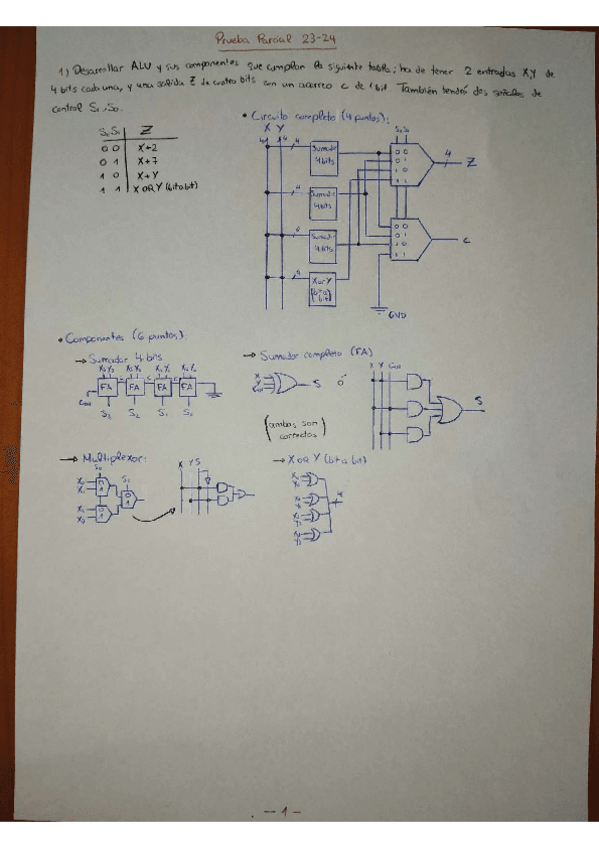 Prueba Parcial 23-24
1) Desarrollar ALU y sus componentes que cumplan la siguiente tabla; ha de tener 2 entradas X,Y de
4 bits cada una, y una salida Z de cuatro bits con un acarreo c de 1 bit. También tendrá dos señales de
control S₁, S₀.
S₁ S₀ Z
0 0 X+2
0 1 X+7
1 0 X+Y
1 1 X OR Y (bit a bit)
• Circuito completo (4 puntos):
X Y
S₁ S₀
4 4
Sumador
4 bits
0 0
0 1
1 0
1 1
4
Z
4
Sumador
4 bits
4
Sumador
4 bits
0 0
0 1
1 0
1 1
c
4
X or Y
(bit a
bit)
GND
• Componentes (6 puntos):
→ Sumador 4 bits
FA FA FA FA
S₃ S₂ S₁ S₀
→ Sumador completo (FA)
X
Y
S ó
(ambos son
correctos)
X Y
S
→ Multiplexor:
S₀
S₁
0
1
0
1
0
1
X Y S
→ X OR Y (bit a bit)
4
-- 1 -